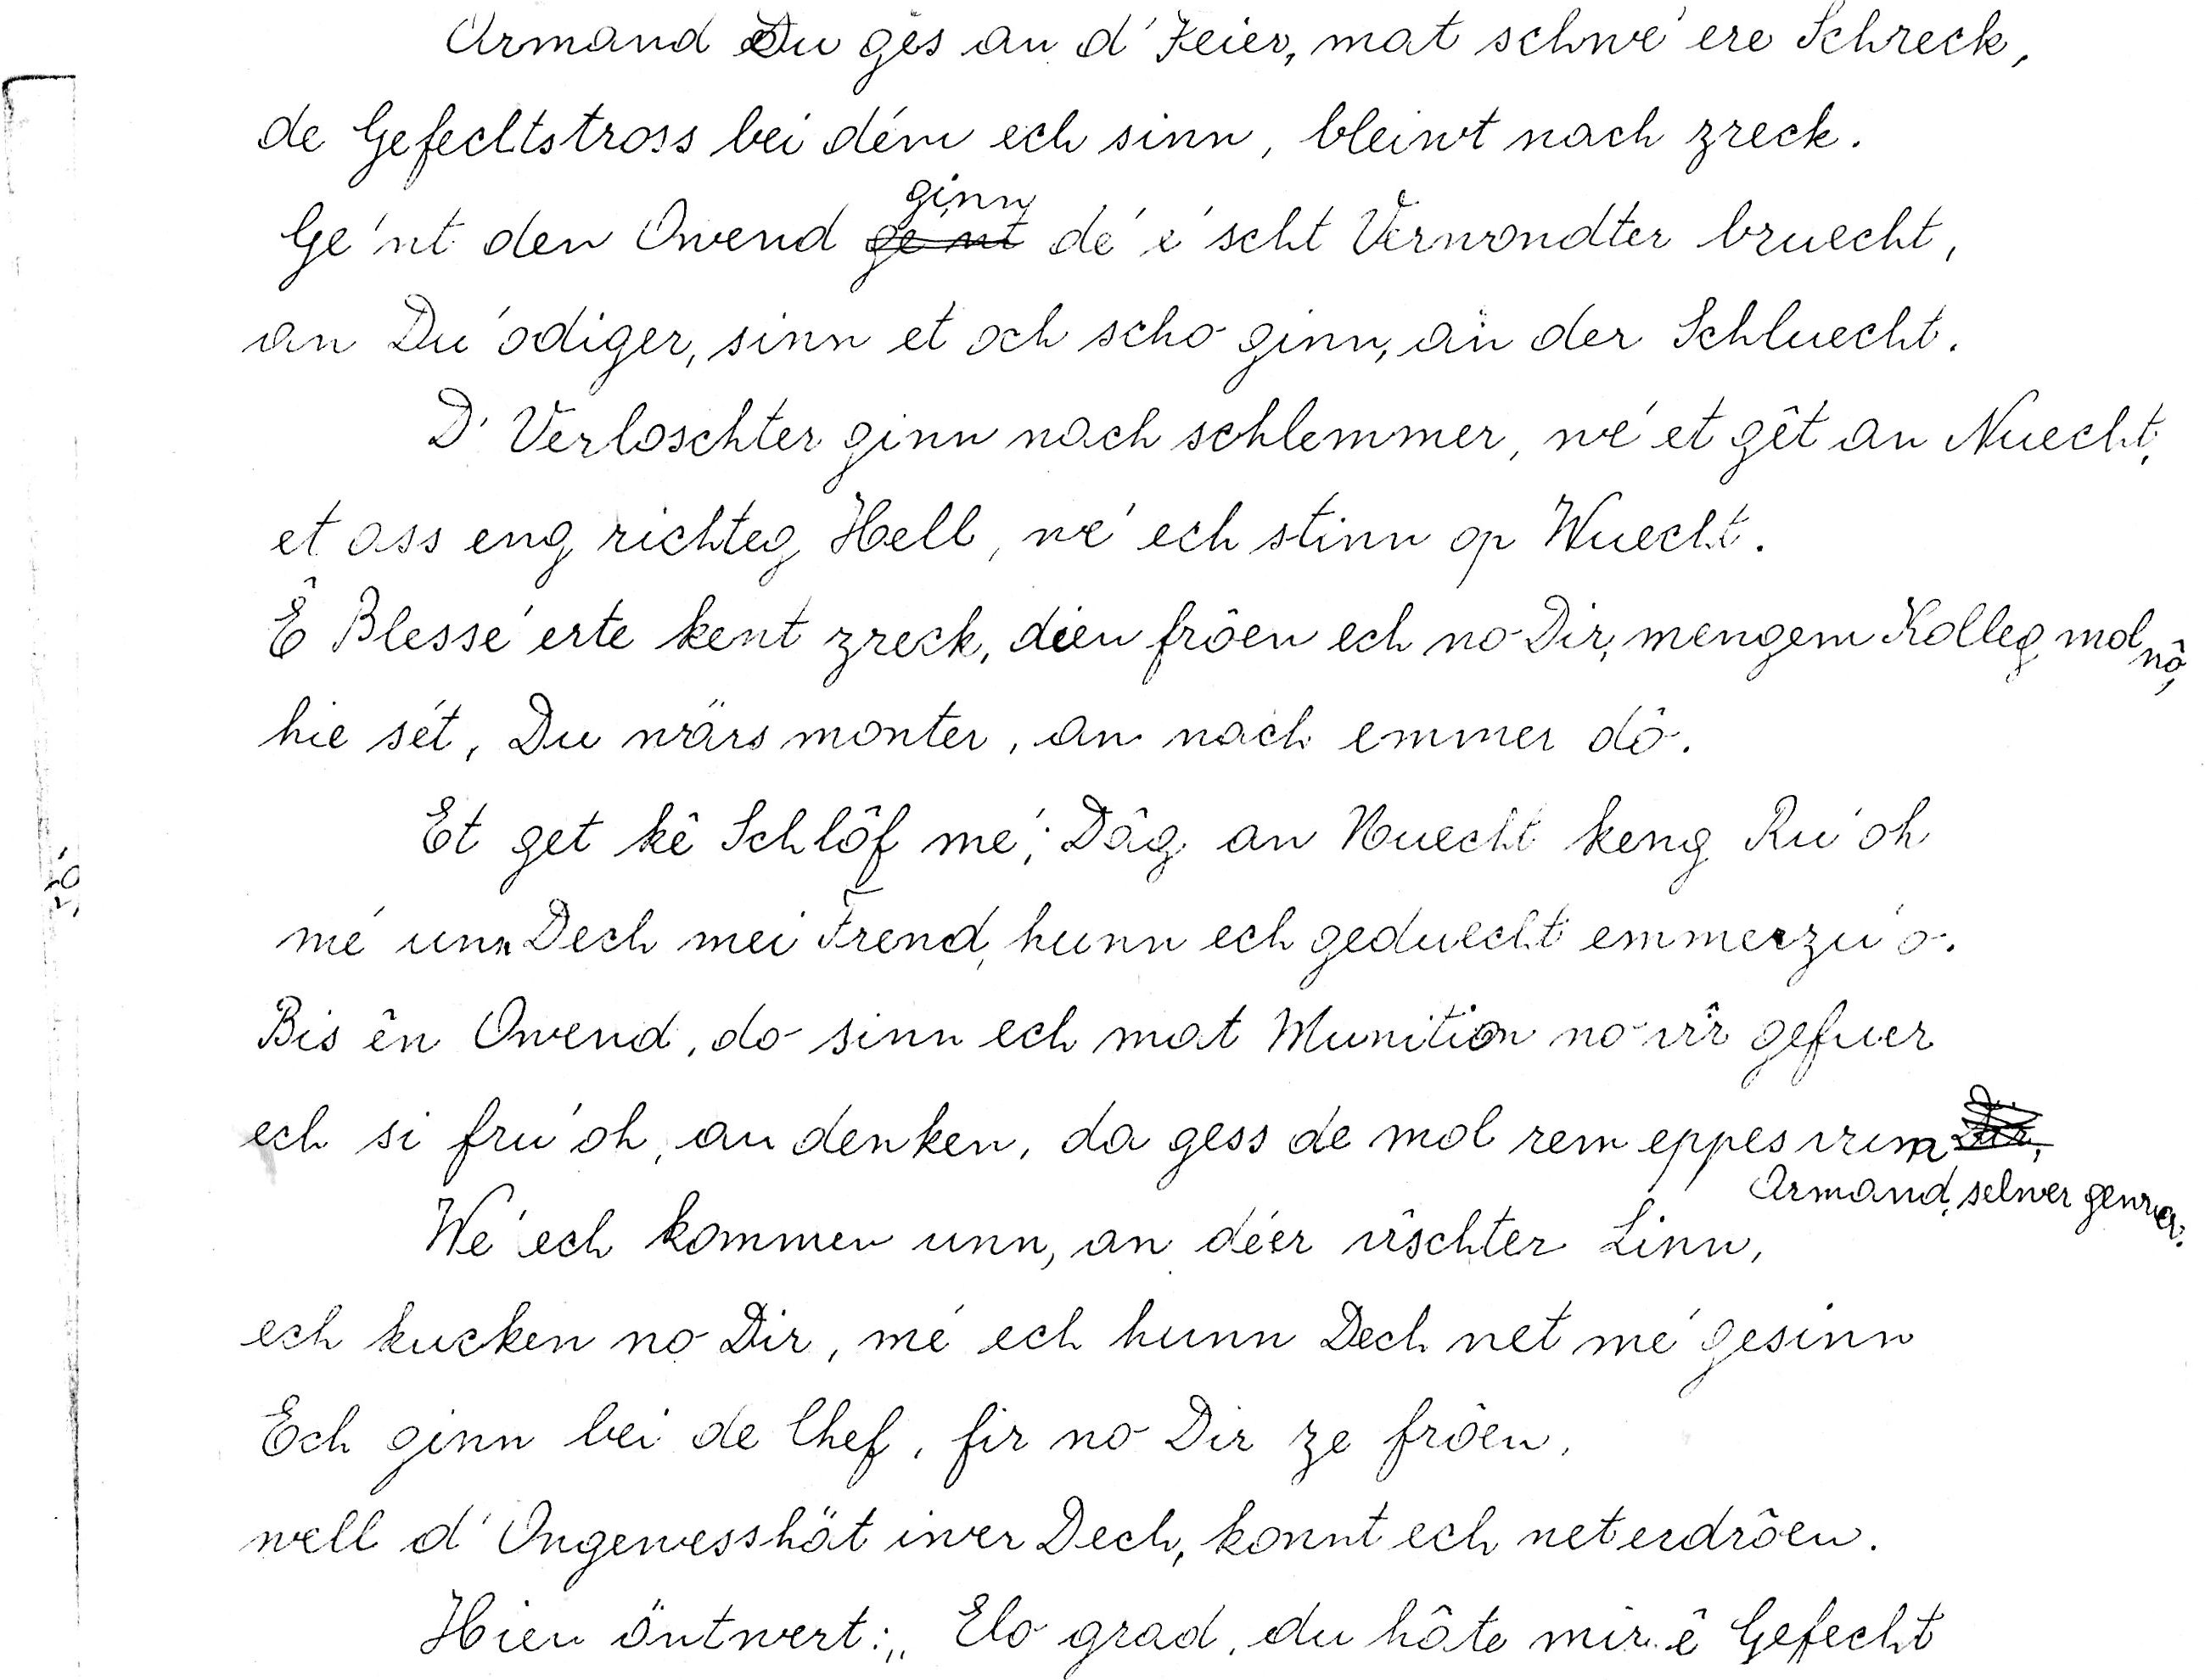 Armand Du gês an d'Feier, mat schwé'ere Schreck,
de Gefechtstross bei dém ech sinn, bleiwt nach zreck.
ginn
Gé'nt den Owend gé'nt dé' é'scht Verwondter bruecht,
an Du'odiger, sinn et och scho ginn, an der Schluecht.
D'Verloschter ginn nach schlemmer, wé' et gêt an Nuecht,
et ass eng richteg Hell, wé' ech stinn op Wuecht.
Ê Blessé'erte kent zreck, dien frôen ech no Dir, mengem Kolleg mol
nô,
hie sét, Du wärs monter, an nach emmer dô.
Et get kê Schlôf mé', Dâg an Nuecht keng Ru'oh
mé unn Dech mei Frend, hunn ech geduecht emmerzu'o.
Bis ên Owend, do sinn ech mat Munition no vîr gefuer
ech si fru'oh, an denken, da gess de mol rem eppes vum
Armand, selwer gewuer.
Wé' ech kommen unn, an déer vîschter Linn,
ech kucken no Dir, mé ech hunn Dech net mé' gesinn
Ech ginn bei de Chef, fir no Dir ze frôen,
well d'Ongewesshät iwer Dech, konnt ech net erdrôen.
Hien äntwert: „Elo grad, du hâte mir ê Gefecht